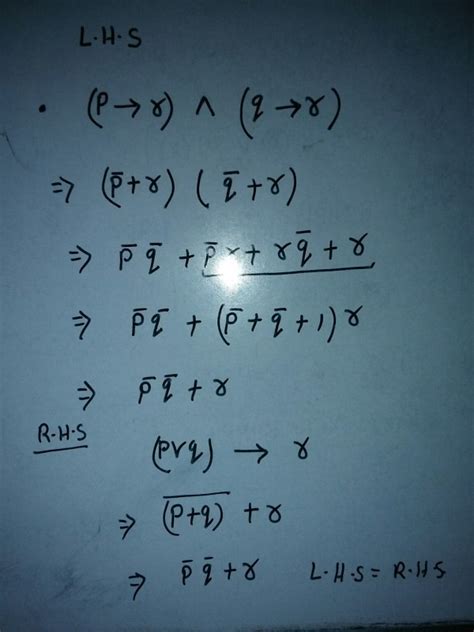 L.H.S
• (p → r) ∧ (q → r)
⇒ (p̄ + r) ( q̄ + r)
⇒ p̄ q̄ + p̄ r + r q̄ + r
⇒ p̄ q̄ + (p̄ + q̄ + 1) r
⇒ p̄ q̄ + r
R.H.S
(p∨q) → r
⇒ (p+q)̅ + r
⇒ p̄ q̄ + r L.H.S = R.H.S